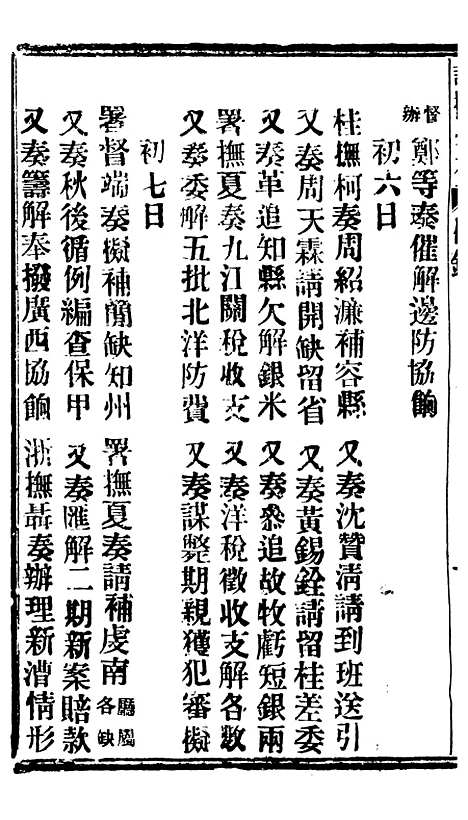 督辦鄭等奏催解邊防協餉
初六日
桂撫柯奏周紹濂補容縣 又奏沈贊清請到班送引
又奏周天霖請開缺留省 又奏黃錫銓請留桂差委
又奏革追知縣欠解銀米 又奏叅追故牧虧短銀兩
署撫夏奏九江關稅收支 又奏洋稅徵收支解各數
又奏委解五批北洋防費 又奏謀斃期親獲犯審擬
初七日
署督端奏擬補簡缺知州 署撫夏奏請補虔南廳各缺
又奏秋後循例編查保甲 又奏匯解二期新案賠款
又奏籌解奉撥廣西協餉 浙撫聶奏辦理新漕情形